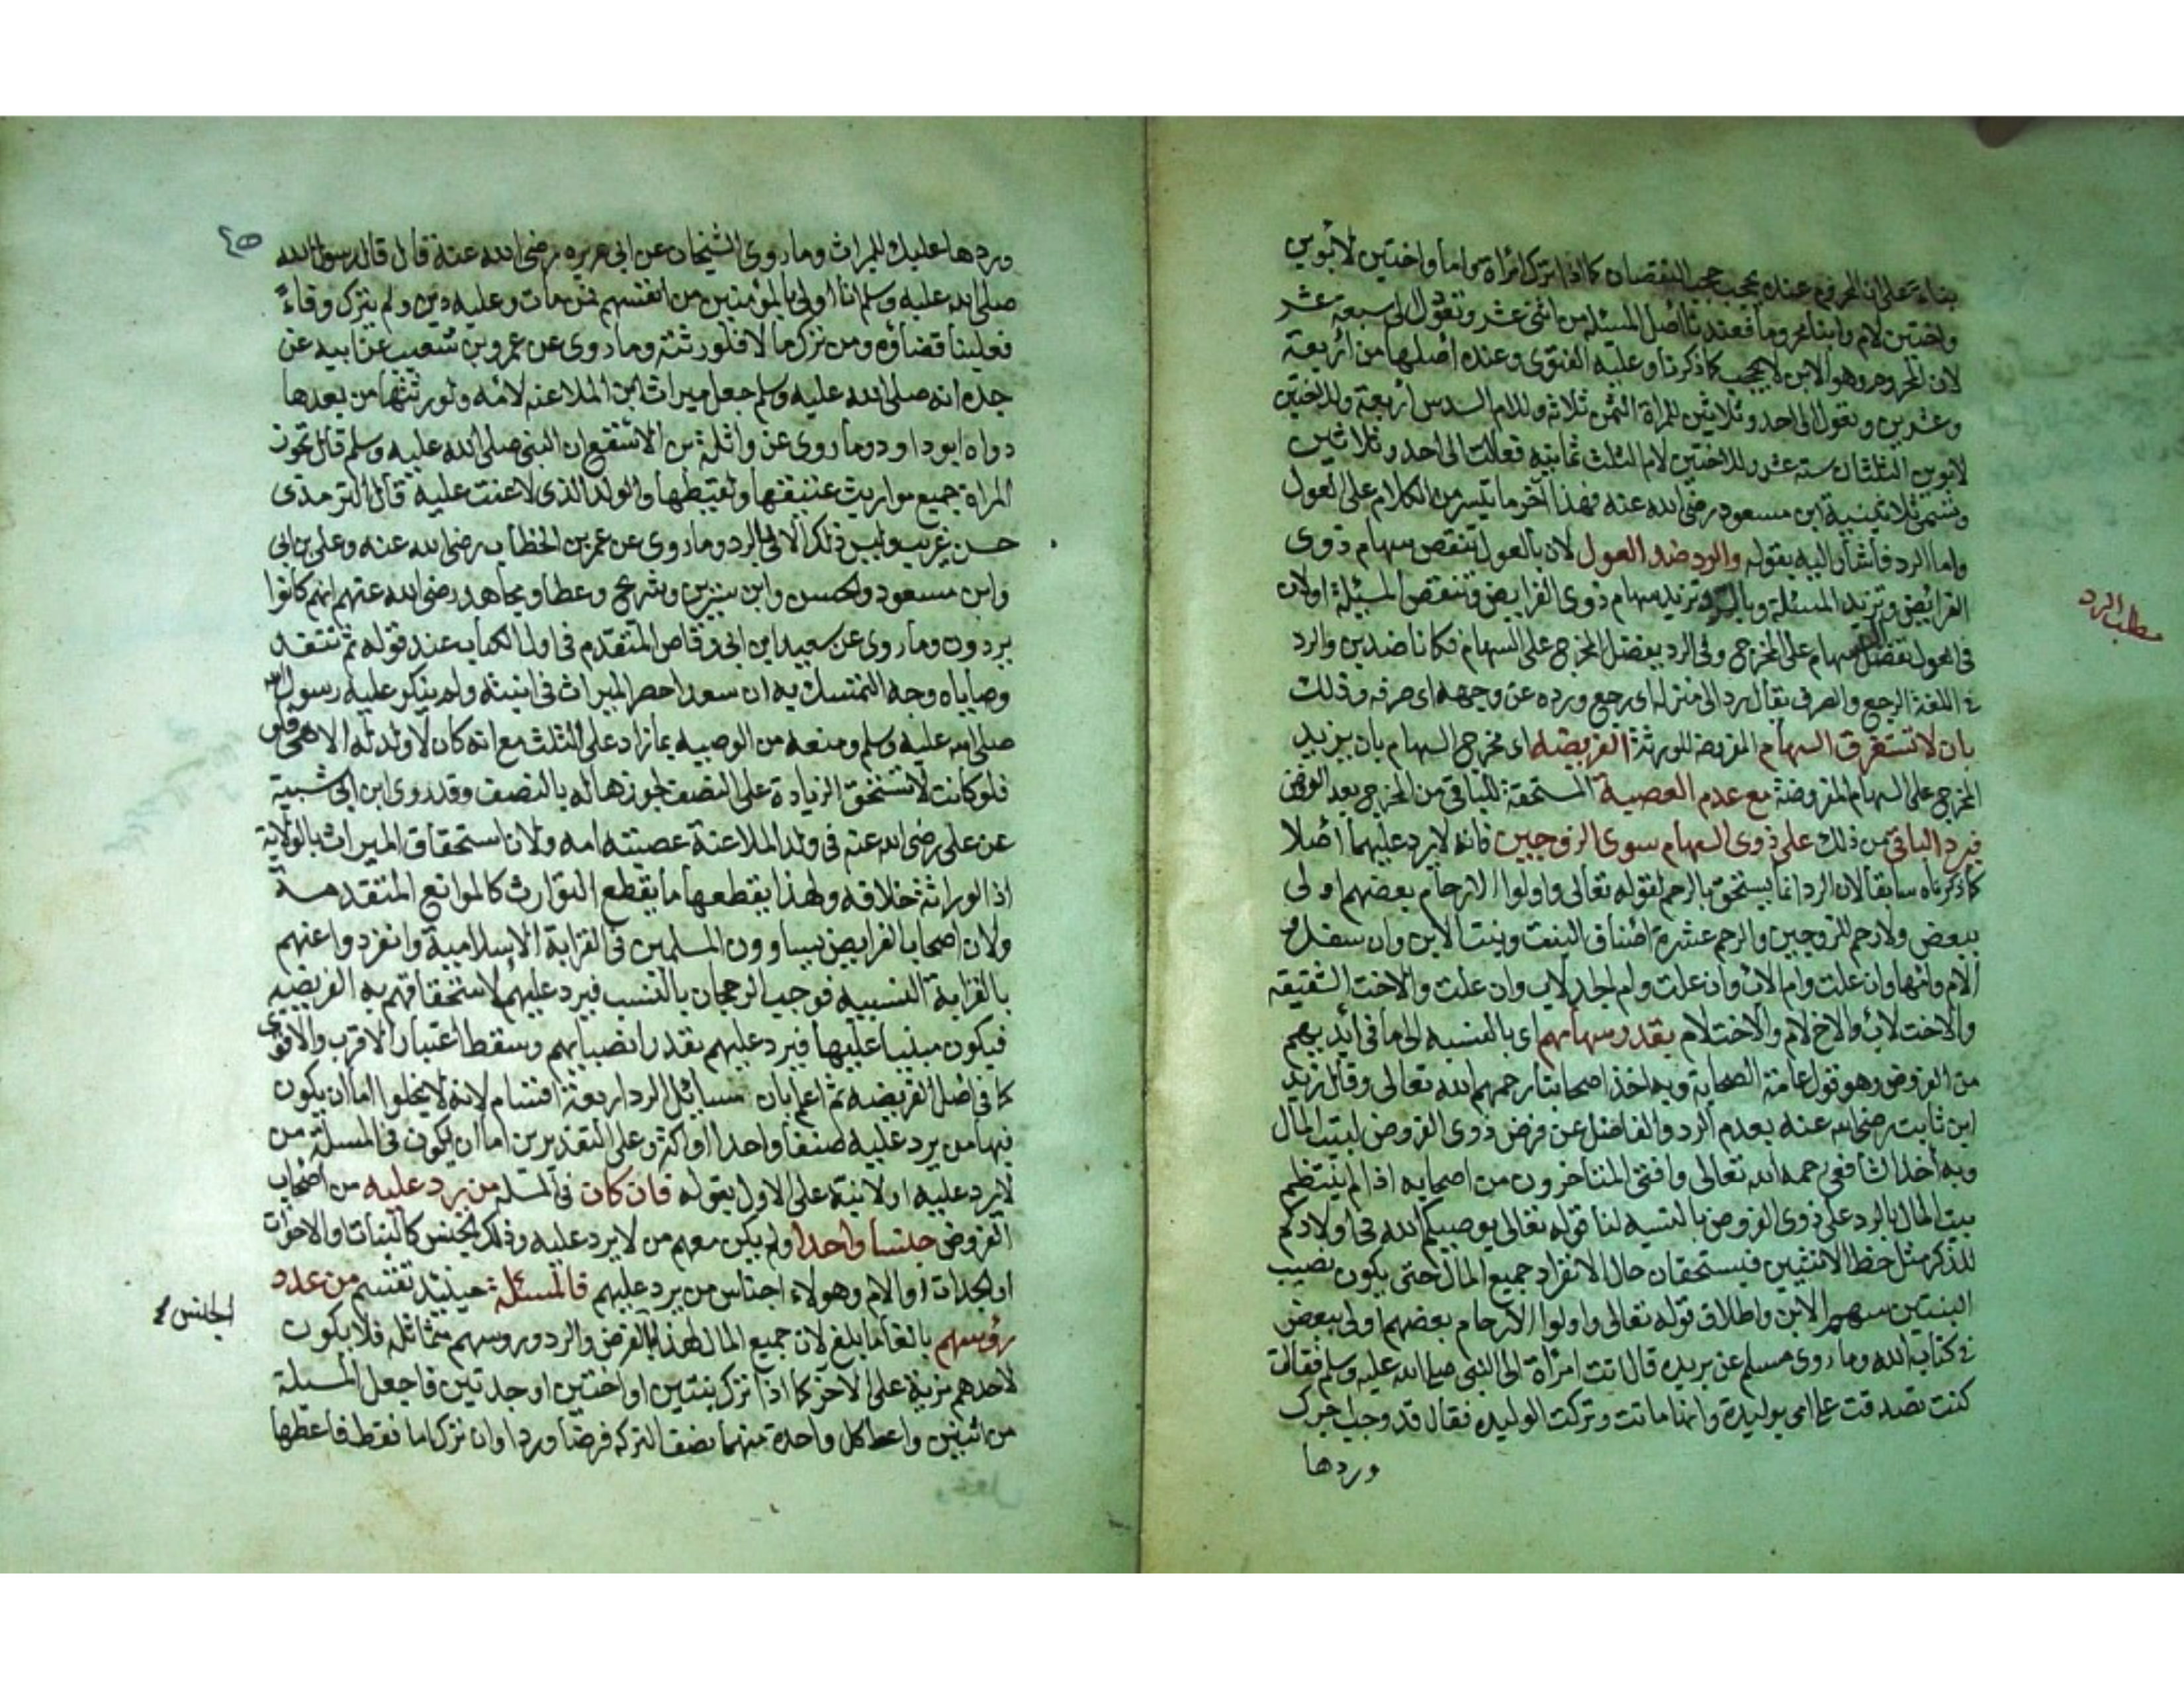 بناء على ان المحروم عنده يحجب حجب النقصان كما اذا ترك امراة واما واختين لابوين
واختين لام وابنا محروما فعندنا اصل المسئلة من اثنى عشر وتعول الى سبعة عشر
لان المحروم وهو الابن لا يحجب كما ذكرنا وعليه الفتوى وعنده اصلها من اربعة
وعشرين وتعول الى احد وثلاثين للمراة الثمن ثلاثة وللام السدس اربعة وللاختين
لابوين الثلثان ستة عشر وللاختين لام الثلث ثمانية فعالت الى احد وثلاثين
وتسمى ثلاثينية ابن مسعود رضى الله عنه فهذا آخر ما تيسر من الكلام على العول
واما الرد فاشار اليه بقوله والرد ضد العول لان بالعول تنقص سهام ذوى
الفرائض وتزيد المسئلة وبالرد تزيد سهام ذوى الفرايض وتنقص المسئلة اولان
فى العول تفضل السهام على المخرج وفى الرد يفضل المخرج على السهام فكانا ضدين والرد
فى اللغة الرجع والصرف يقال رد الى منزله اى رجع ورده عن وجهه اى صرفه وذلك
بان لا تستغرق السهام المفروضة للورثة الفريضة اى مخرج السهام بان يزيد
المخرج على السهام المفروضة مع عدم العصبة المستحقة للباقى من المخرج بعد الفرض
فيرد الباقى من ذلك على ذوى السهام سوى الزوجين فانه لا يرد عليهما اصلا
كما ذكرناه سابقا لان الرد انما يستحق بالرحم لقوله تعالى واولوا الارحام بعضهم اولى
ببعض ولا رحم للزوجين والرحم عشرة اصناف البنت وبنت الابن وان سفل و
الام وامها وان علت وام الاب وان علت وام الجد لاب وان علت والاخت الشقيقة
والاخت لاب والاخ لام والاخت لام بقدر سهامهم اى بالنسبة الى ما فى ايديهم
من الفروض وهو قول عامة الصحابة وبه اخذ اصحابنا رحمهم الله تعالى وقال زيد
ابن ثابت رضى الله عنه بعدم الرد والفاضل عن فرض ذوى الفروض لبيت المال
وبه اخذ الشافعى رحمه الله تعالى وافتى المتاخرون من اصحابه اذا لم ينتظم
بيت المال بالرد على ذوى الفروض بالنسبة لنا قوله تعالى يوصيكم الله فى اولادكم
للذكر مثل حظ الانثيين فيستحقان حال الانفراد جميع المال حتى يكون نصيب
البنتين سهم الابن واطلاق قوله تعالى واولوا الارحام بعضهم اولى ببعض
فى كتاب الله وما روى مسلم عن بريده قال اتت امراة الى النبى صلى الله عليه وسلم فقالت
كنت تصدقت على امى بوليدة وانها ماتت وتركت الوليده فقال قد وجب اجرك
وردها
مطلب الرد
وردها عليك الميراث وما روى الشيخان عن ابى هريره رضى الله عنه قال قال رسول الله
صلى الله عليه وسلم انا اولى بالمؤمنين من انفسهم فمن مات وعليه دين ولم يترك وفاءً
فعلينا قضاؤه ومن ترك مالا فلورثته وما روى عن عمرو بن شعيب عن ابيه عن
جده انه صلى الله عليه وسلم جعل ميراث ابن الملاعنه لامه ولورثتها من بعدها
رواه ابو داود وما روى عن واثلة بن الاسقع ان النبى صلى الله عليه وسلم قال تحوز
المراة جميع مواريث عتيقها ولقيطها والولد الذى لاعنت عليه قال الترمذى
حسن غريب وليس ذلك الا بالرد وما روى عن عمر بن الخطاب رضى الله عنه وعلى بن ابى
وابن مسعود والحسن وابن سيرين وشريح وعطا ومجاهد رضى الله عنهم انهم كانوا
يردون وما روى عن سعيد ابن ابى وقاص المتقدم فى اول الكتاب عند قوله ثم تنفذ
وصاياه وجه التمسك به ان سعدا حصر الميراث فى ابنته ولم ينكر عليه رسول الله
صلى الله عليه وسلم ومنعه من الوصيه بما زاد على الثلث مع انه كان لا ولد له الا هى
فلو كانت لا تستحق الزيادة على النصف لجوزها له بالنصف وقد روى ابن ابى شيبة
عن على رضى الله عنه فى ولد الملاعنة عصبته امه ولان استحقاق الميراث بالولاية
اذ الوراثة خلافه ولهذا يقطعها ما يقطع التوارث كالموانع المتقدمة
ولان اصحاب الفرايض يساوون المسلمين فى القرابة الاسلامية وانفردوا عنهم
بالقرابة النسبيه فوجب الرجحان بالنسب فيرد عليهم لاستحقاقهم به الفريضيه
فيكون مبنيا عليها فيرد عليهم بقدر انصبائهم وسقط اعتبار الاقرب والاقوى
كما فى اصل الفريضه ثم اعلم بان مسايل الرد اربعة اقسام لانه لا يخلوا اما ان يكون
فيها من يرد عليه صنفا واحدا او اكثر وعلى التقديرين اما ان يكون فى المسئلة من
لا يرد عليه اولا نبه على الاول بقوله فان كان فى المسئلة من يرد عليه من اصحاب
الفروض جنسا واحدا ولم يكن معهم من لا يرد عليه وذلك الجنس كالبنات او الاخوات
او الجدات او الام وهولاء اجناس من يرد عليهم فالمسئلة حينئذ تقسم من عدد
رؤسهم بالغا ما بلغ لان جميع المال لهذا بالفرض والرد ورؤسهم متماثله فلا يكون
لاحدهم مزية على الاخر كما اذا ترك بنتين او اختين او جدتين فاجعل المسئلة
من اثنين واعط كل واحدة منهما نصف التركه فرضا وردا وان ترك اما فقط فاعطها
الجنس